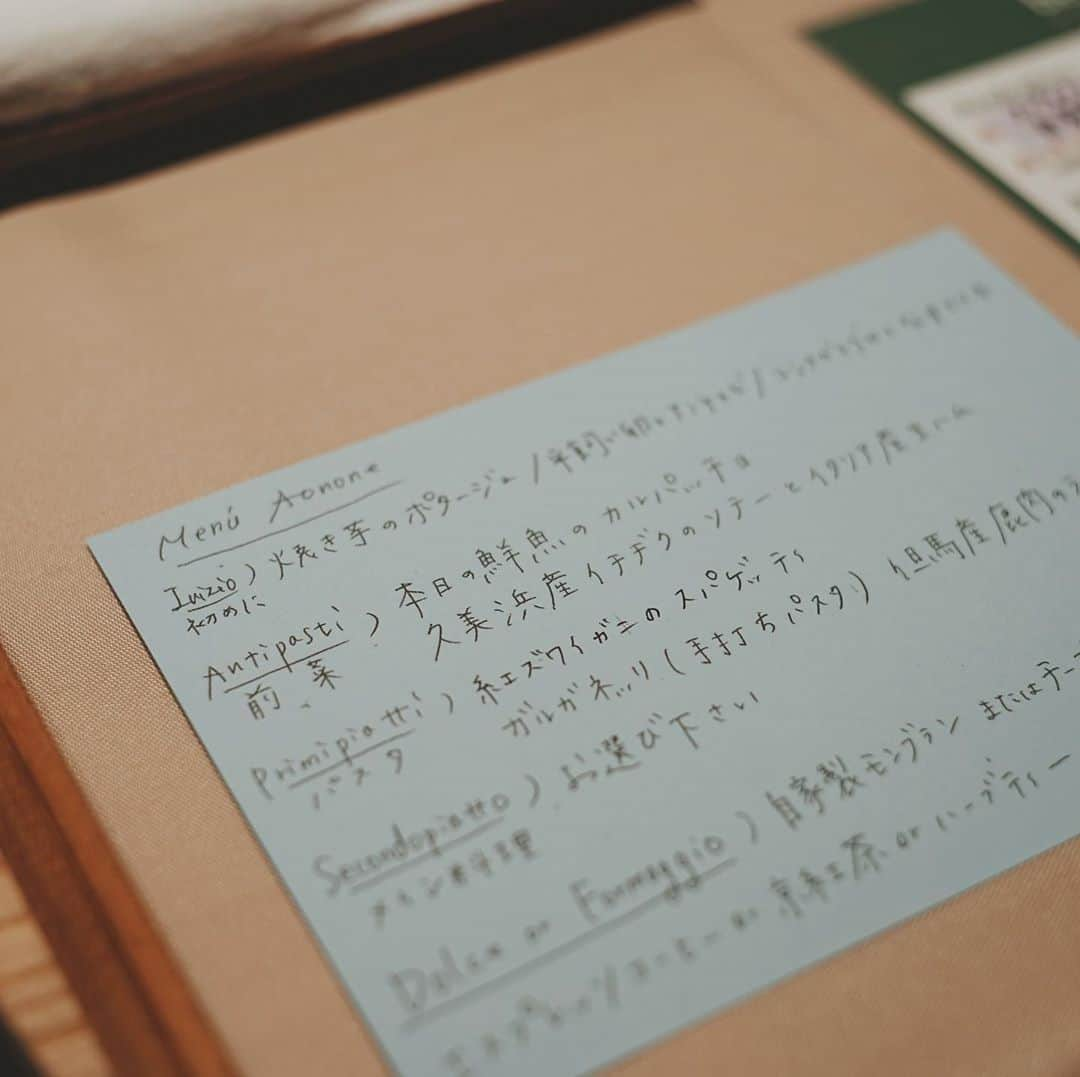 Menú Aonone
Inizio) 焼き芋のポタージュ /
初めに
Antipasti) 本日の鮮魚のカルパッチョ
前菜 久美浜産イチヂクのソテーとイタリア産生ハム
Primipiatti) 紅ズワイガニのスパゲッティ
パスタ ガルガネッリ(手打ちパスタ) 但馬産鹿肉の
Secondopiatto) お選び下さい
メイン料理
Dolce or Formaggio) 自家製モンブラン またはチーズ
エスプレッソ/コーヒー or 京紅茶 or ハーブティー